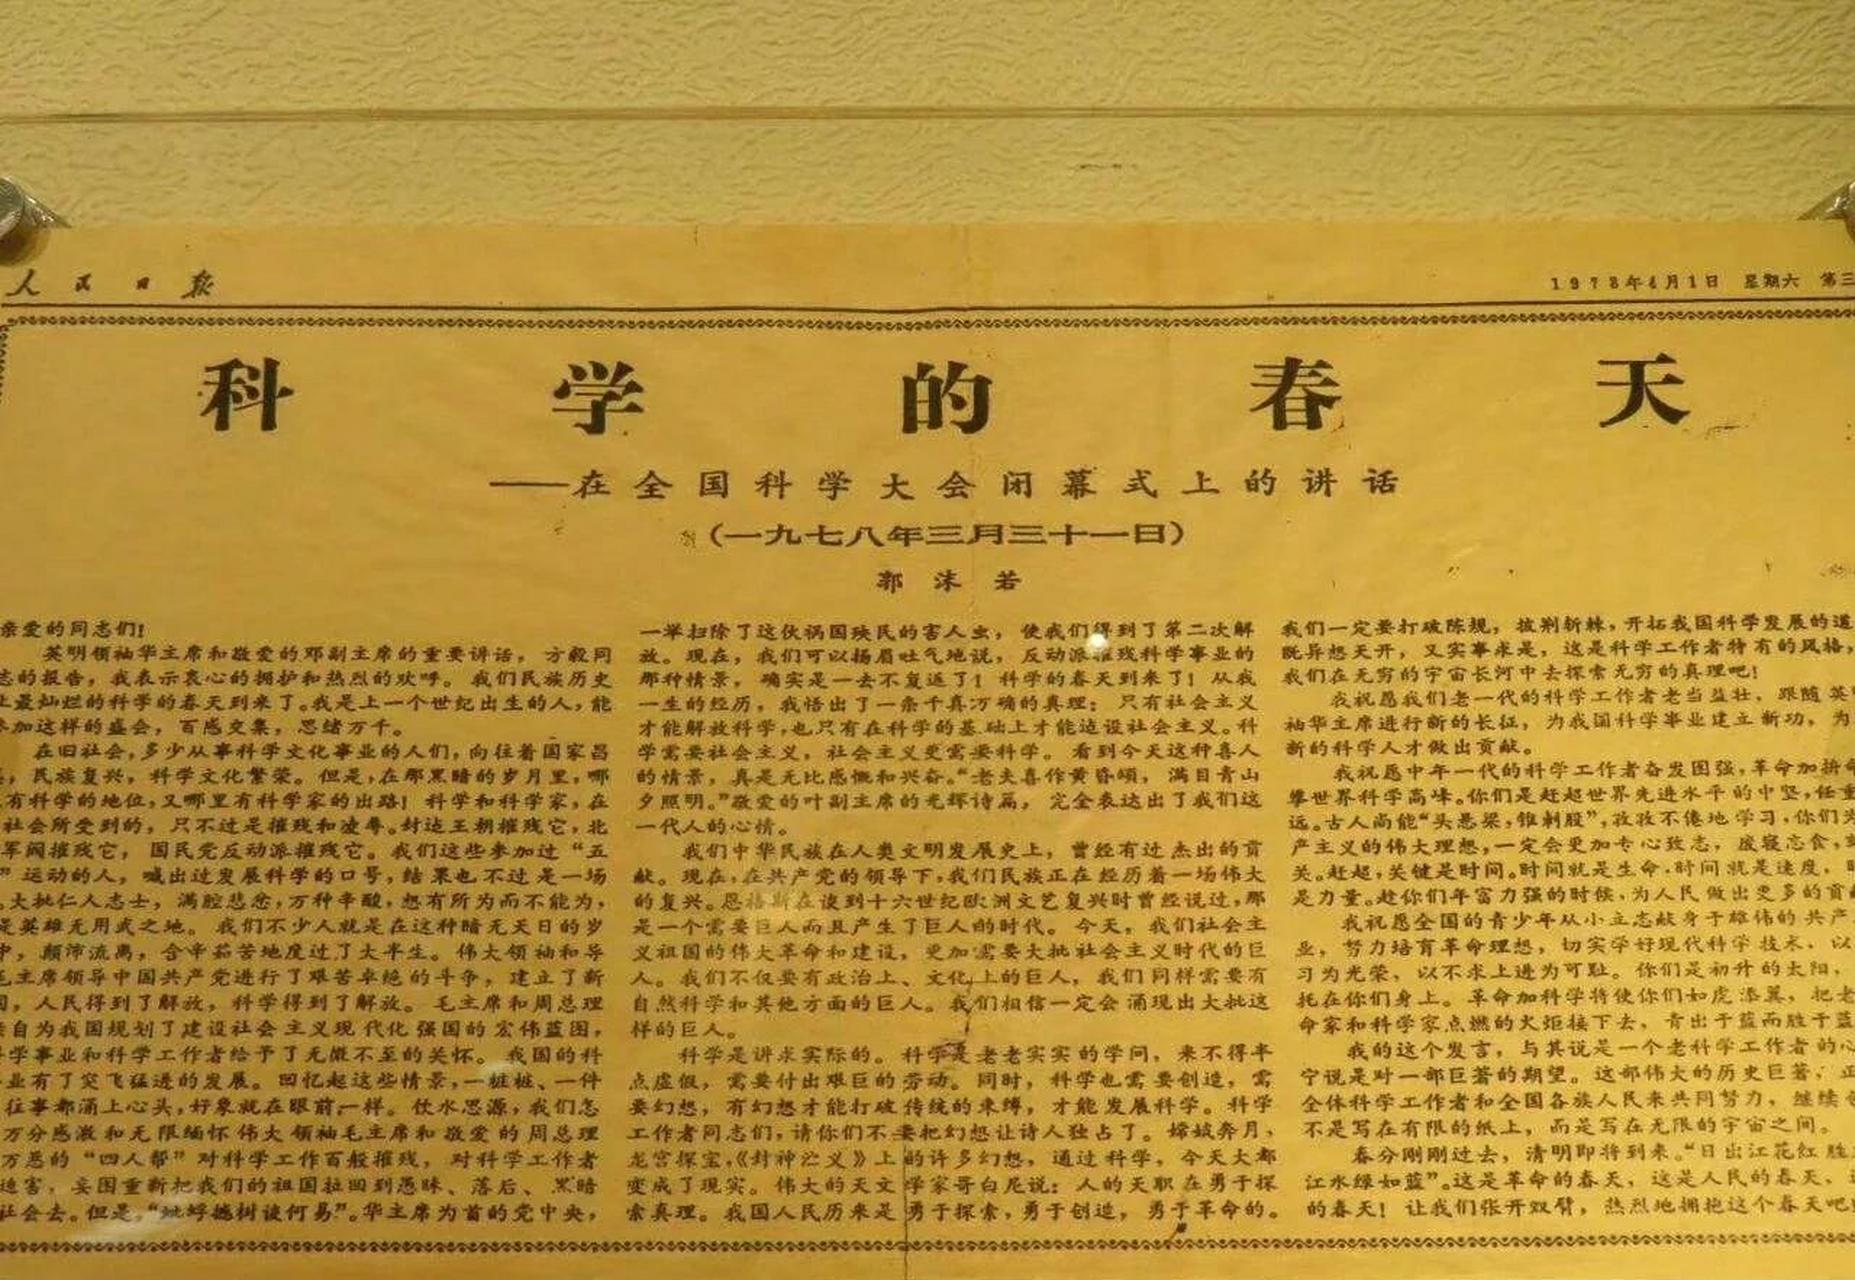 人民日报
1978年4月1日 星期六 第三
科学的春天
——在全国科学大会闭幕式上的讲话
（一九七八年三月三十一日）
郭沫若
亲爱的同志们！
英明领袖华主席和敬爱的邓副主席的重要讲话，方毅同
志的报告，我表示衷心的拥护和热烈的欢呼。我们民族历史
上最灿烂的科学的春天到来了。我是上一个世纪出生的人，能
参加这样的盛会，百感交集，思绪万千。
在旧社会，多少从事科学文化事业的人们，向往着国家昌
，民族复兴，科学文化繁荣。但是，在那黑暗的岁月里，哪
有科学的地位，又哪里有科学家的出路！科学和科学家，在
社会所受到的，只不过是摧残和凌辱。封建王朝摧残它，北
军阀摧残它，国民党反动派摧残它。我们这些参加过“五
”运动的人，喊出过发展科学的口号，结果也不过是一场
。大批仁人志士，满腔悲愤，万种辛酸，想有所为而不能为，
是英雄无用武之地。我们不少人就是在这种暗无天日的岁
中，颠沛流离，含辛茹苦地度过了大半生。伟大领袖和导
毛主席领导中国共产党进行了艰苦卓绝的斗争，建立了新
国，人民得到了解放，科学得到了解放。毛主席和周总理
亲自为我国规划了建设社会主义现代化强国的宏伟蓝图，
学事业和科学工作者给予了无微不至的关怀。我国的科
业有了突飞猛进的发展。回忆起这些情景，一桩桩、一件
往事都涌上心头，好象就在眼前一样。饮水思源，我们怎
万分感激和无限缅怀伟大领袖毛主席和敬爱的周总理
万恶的“四人帮”对科学工作百般摧残，对科学工作者
迫害，妄图重新把我们的祖国拉回到愚昧、落后、黑暗
社会去。但是，“蚍蜉撼树谈何易”。华主席为首的党中央，
一举扫除了这伙祸国殃民的害人虫，使我们得到了第二次解
放。现在，我们可以扬眉吐气地说，反动派摧残科学事业的
那种情景，确实是一去不复返了！科学的春天到来了！从我
一生的经历，我悟出了一条千真万确的真理：只有社会主义
才能解放科学，也只有在科学的基础上才能建设社会主义。科
学需要社会主义，社会主义更需要科学。看到今天这种喜人
的情景，真是无比感慨和兴奋。“老夫喜作黄昏颂，满目青山
夕照明。”敬爱的叶副主席的光辉诗篇，完全表达出了我们这
一代人的心情。
我们中华民族在人类文明发展史上，曾经有过杰出的贡
献。现在，在共产党的领导下，我们民族正在经历着一场伟大
的复兴。恩格斯在谈到十六世纪欧洲文艺复兴时曾经说过，那
是一个需要巨人而且产生了巨人的时代。今天，我们社会主
义祖国的伟大革命和建设，更加需要大批社会主义时代的巨
人。我们不仅要有政治上、文化上的巨人，我们同样需要有
自然科学和其他方面的巨人。我们相信一定会涌现出大批这
样的巨人。
科学是讲求实际的。科学是老老实实的学问，来不得半
点虚假，需要付出艰巨的劳动。同时，科学也需要创造，需
要幻想，有幻想才能打破传统的束缚，才能发展科学。科学
工作者同志们，请你们不要把幻想让诗人独占了。嫦娥奔月，
龙宫探宝，《封神演义》上的许多幻想，通过科学，今天大都
变成了现实。伟大的天文学家哥白尼说：人的天职在勇于探
索真理。我国人民历来是勇于探索，勇于创造，勇于革命的。
我们一定要打破陈规，披荆斩棘，开拓我国科学发展的道
既异想天开，又实事求是，这是科学工作者特有的风格，
我们在无穷的宇宙长河中去探索无穷的真理吧！
我祝愿我们老一代的科学工作者老当益壮，跟随英
袖华主席进行新的长征，为我国科学事业建立新功，为
新的科学人才做出贡献。
我祝愿中年一代的科学工作者奋发图强，革命加拚命
攀世界科学高峰。你们是赶超世界先进水平的中坚，任重
远。古人尚能“头悬梁，锥刺股”，孜孜不倦地学习，你们为
产主义的伟大理想，一定会更加专心致志，废寝忘食，
关。赶超，关键是时间。时间就是生命，时间就是速度，
是力量。趁你们年富力强的时候，为人民做出更多的贡
我祝愿全国的青少年从小立志献身于雄伟的共产
业，努力培育革命理想，切实学好现代科学技术，以
习为光荣，以不求上进为可耻。你们是初升的太阳，
托在你们身上。革命加科学将使你们如虎添翼，把老
命家和科学家点燃的火炬接下去，青出于蓝而胜于蓝
我的这个发言，与其说是一个老科学工作者的心
宁说是对一部巨著的期望。这部伟大的历史巨著，正
全体科学工作者和全国各族人民来共同努力，继续
不是写在有限的纸上，而是写在无限的宇宙之间。
春分刚刚过去，清明即将到来。“日出江花红胜
江水绿如蓝”。这是革命的春天，这是人民的春天，
的春天！让我们张开双臂，热烈地拥抱这个春天吧